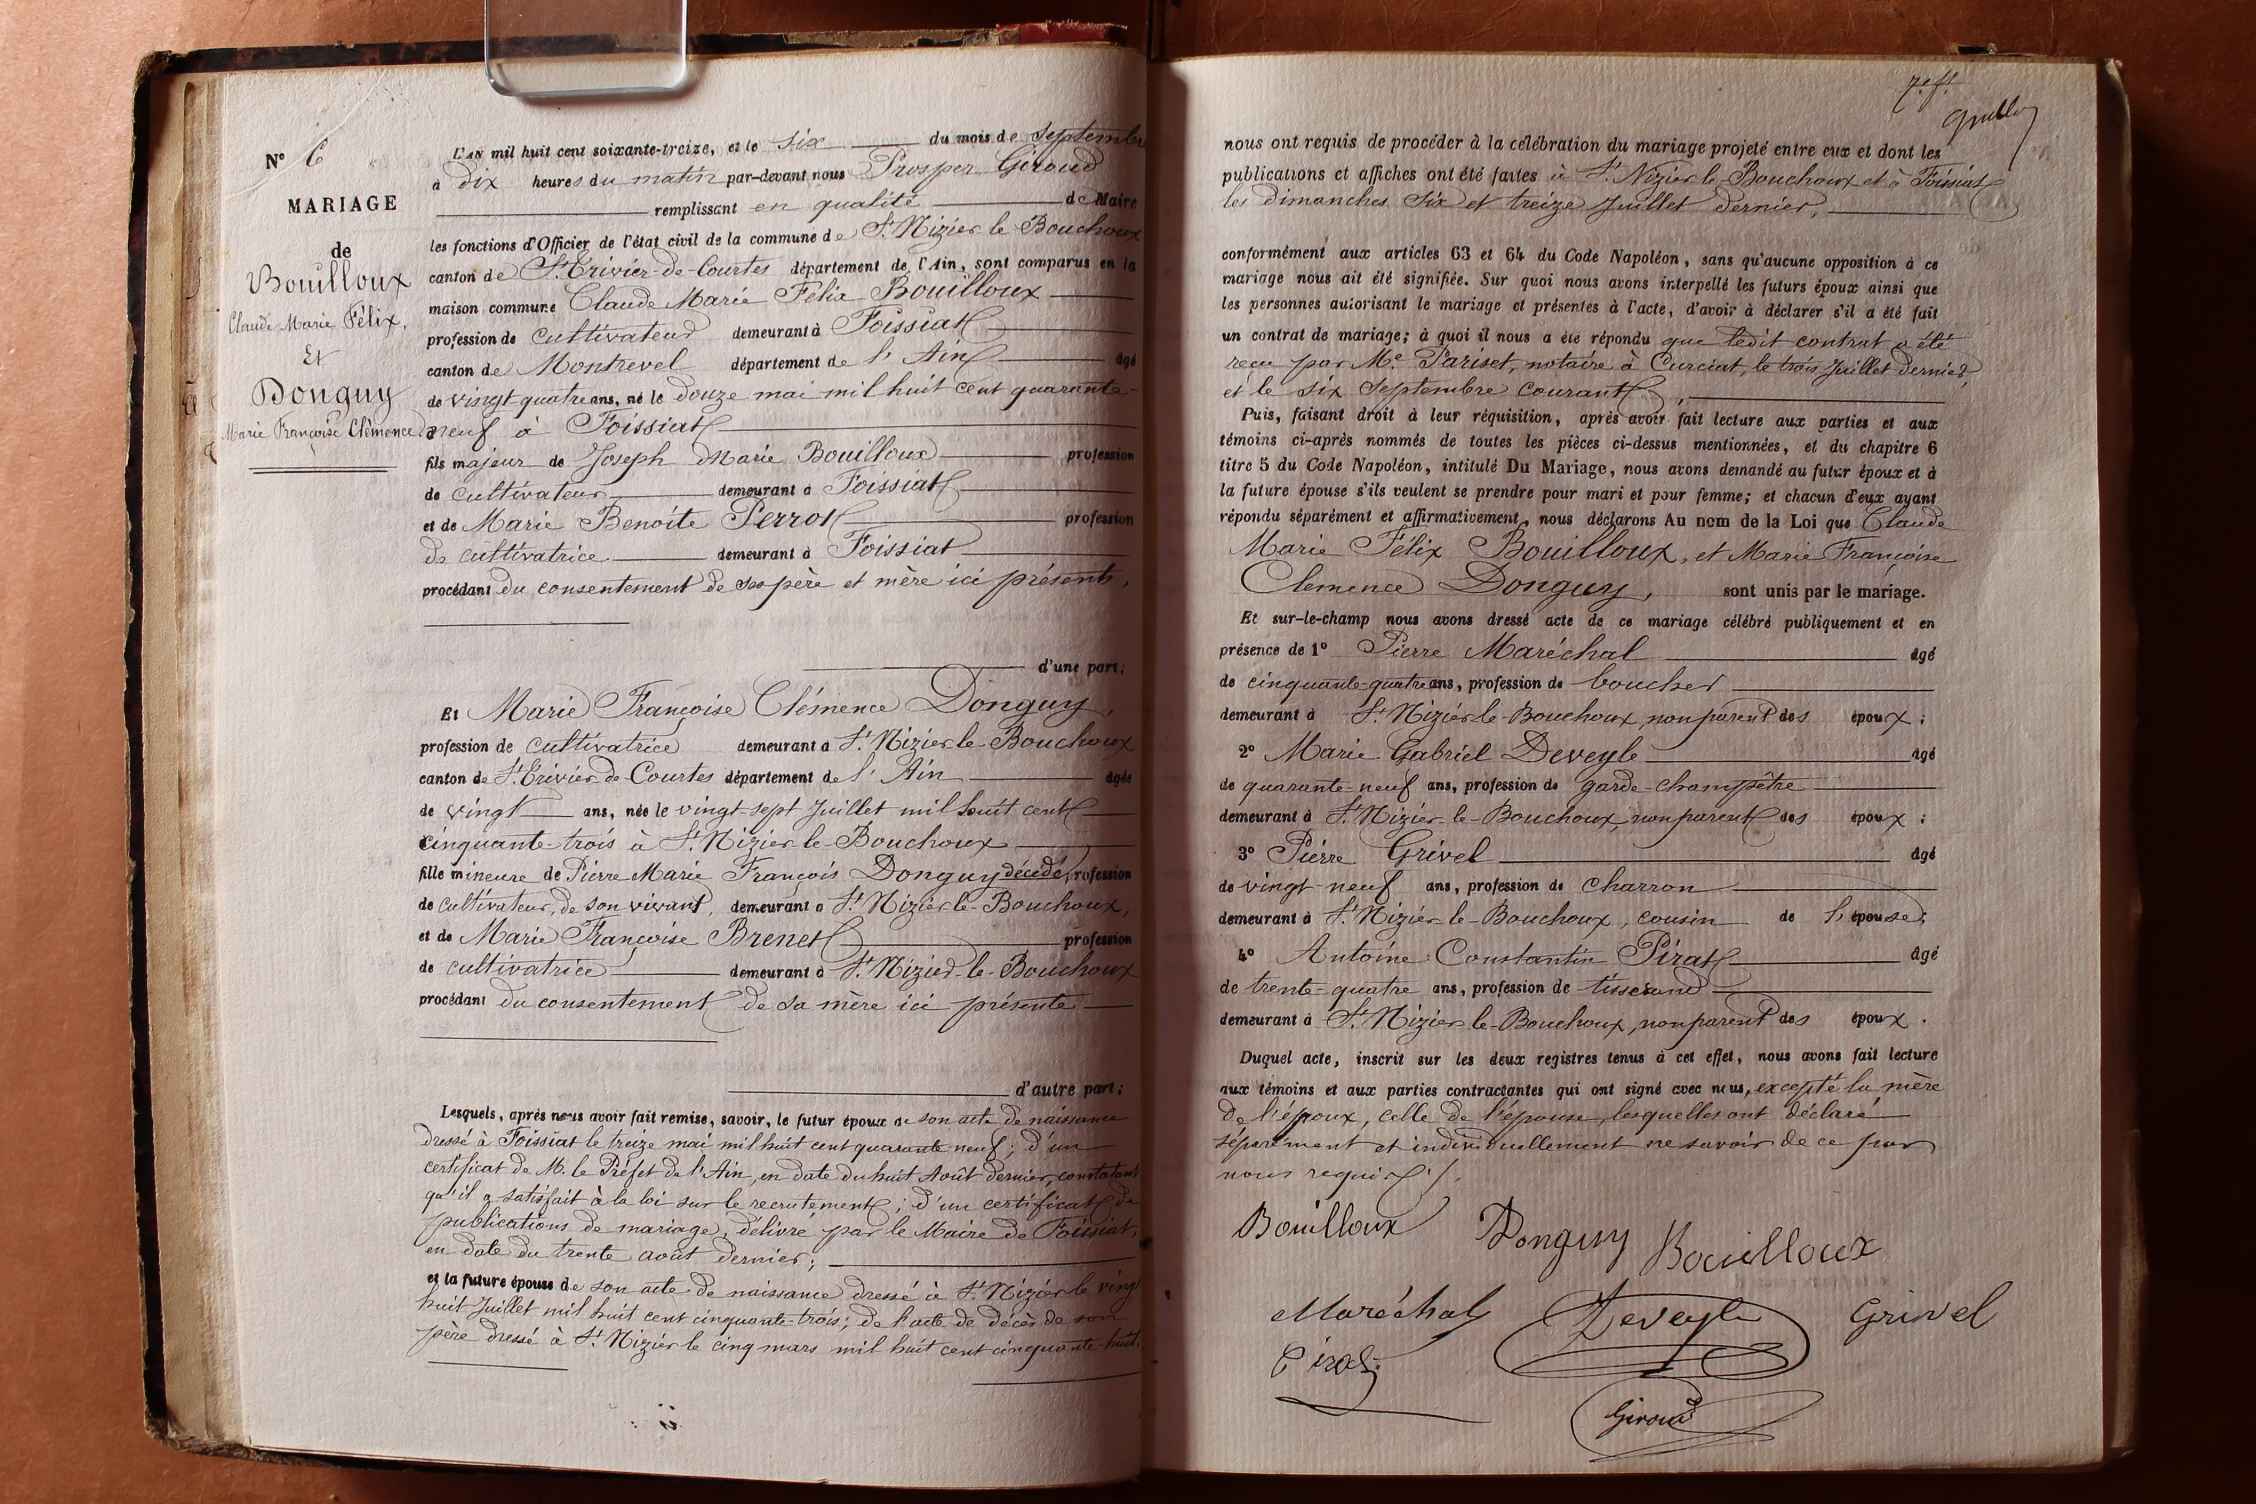 N° 6
MARIAGE
de
Bouilloux
Claude Marie Félix,
Et
Donguy
Marie Françoise Clémence
L'AN mil huit cent soixante-treize, et le six du mois de Septembre
à dix heures du matin par-devant nous Prosper Giroud
remplissant en qualité de Maire
les fonctions d'Officier de l'état civil de la commune de St Nizier le Bouchoux
canton de St Trivier-de-Courtes département de l'Ain, sont comparus en la
maison commune Claude Marie Félix Bouilloux
profession de cultivateur demeurant à Foissiat
canton de Montrevel département de l'Ain âgé
de vingt quatre ans, né le douze mai mil huit cent quarante-
neuf à Foissiat
fils majeur de Joseph Marie Bouilloux profession
de cultivateur demeurant à Foissiat
et de Marie Benoite Perrot profession
de cultivatrice demeurant à Foissiat
procédant du consentement de ses père et mère ici présents,
d'une part;
Et Marie Françoise Clémence Donguy,
profession de cultivatrice demeurant à St Nizier le-Bouchoux
canton de St Trivier de-Courtes département de l'Ain âgée
de vingt ans, née le vingt-sept Juillet mil huit cent
cinquante-trois à St Nizier-le-Bouchoux
fille mineure de Pierre Marie François Donguy décédé, profession
de cultivateur, de son vivant, demeurant à St Nizier-le-Bouchoux,
et de Marie Françoise Brenet profession
de cultivatrice demeurant à St Nizier-le-Bouchoux
procédant du consentement de sa mère ici présente
d'autre part;
Lesquels, après nous avoir fait remise, savoir, le futur époux de son acte de naissance
dressé à Foissiat le treize mai mil huit cent quarante neuf; d'un
certificat de M. le Préfet de l'Ain, en date du huit Août dernier, constatant
qu'il a satisfait à la loi sur le recrutement; d'un certificat de
publications de mariage, délivré par le Maire de Foissiat,
en date du trente août dernier;
et la future épouse de son acte de naissance dressé à St Nizier le vingt
huit Juillet mil huit cent cinquante-trois; de l'acte de décès de son
père dressé à St Nizier le cinq mars mil huit cent cinquante-huit.
nous ont requis de procéder à la célébration du mariage projeté entre eux et dont les
publications et affiches ont été faites à St Nizier le Bouchoux et à Foissiat
les dimanches six et treize Juillet dernier,
conformément aux articles 63 et 64 du Code Napoléon, sans qu'aucune opposition à ce
mariage nous ait été signifiée. Sur quoi nous avons interpellé les futurs époux ainsi que
les personnes autorisant le mariage et présentes à l'acte, d'avoir à déclarer s'il a été fait
un contrat de mariage; à quoi il nous a été répondu que ledit contrat a été
reçu par Me Pariset, notaire à Curciat, le trois Juillet dernier,
et le six Septembre courant,
Puis, faisant droit à leur réquisition, après avoir fait lecture aux parties et aux
témoins ci-après nommés de toutes les pièces ci-dessus mentionnées, et du chapitre 6
titre 5 du Code Napoléon, intitulé Du Mariage, nous avons demandé au futur époux et à
la future épouse s'ils veulent se prendre pour mari et pour femme; et chacun d'eux ayant
répondu séparément et affirmativement, nous déclarons Au nom de la Loi que Claude
Marie Félix Bouilloux, et Marie Françoise
Clemence Donguy, sont unis par le mariage.
Et sur-le-champ nous avons dressé acte de ce mariage célébré publiquement et en
présence de 1° Pierre Maréchal âgé
de cinquante-quatre ans, profession de boucher
demeurant à St Nizier-le-Bouchoux, non parent des époux;
2° Marie Gabriel Deveyle âgé
de quarante-neuf ans, profession de garde-champêtre
demeurant à St Nizier-le-Bouchoux, non parent des époux;
3° Pierre Grivel âgé
de vingt-neuf ans, profession de charron
demeurant à St Nizier-le-Bouchoux, cousin de l'épouse;
4° Antoine Constantin Pirat âgé
de trente-quatre ans, profession de tisserand
demeurant à St Nizier-le-Bouchoux, non parent des époux.
Duquel acte, inscrit sur les deux registres tenus à cet effet, nous avons fait lecture
aux témoins et aux parties contractantes qui ont signé avec nous, excepté la mère
de l'époux, celle de l'épouse, lesquelles ont déclaré
séparément et individuellement ne savoir de ce par
nous requis ./.
Bouilloux Donguy Bouilloux
Maréchal Deveyle Grivel
Pirat
Giroud